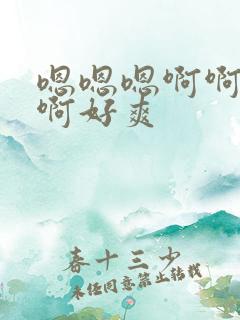 嗯嗯嗯啊啊
啊好爽
春十三少
未经同意禁止转载